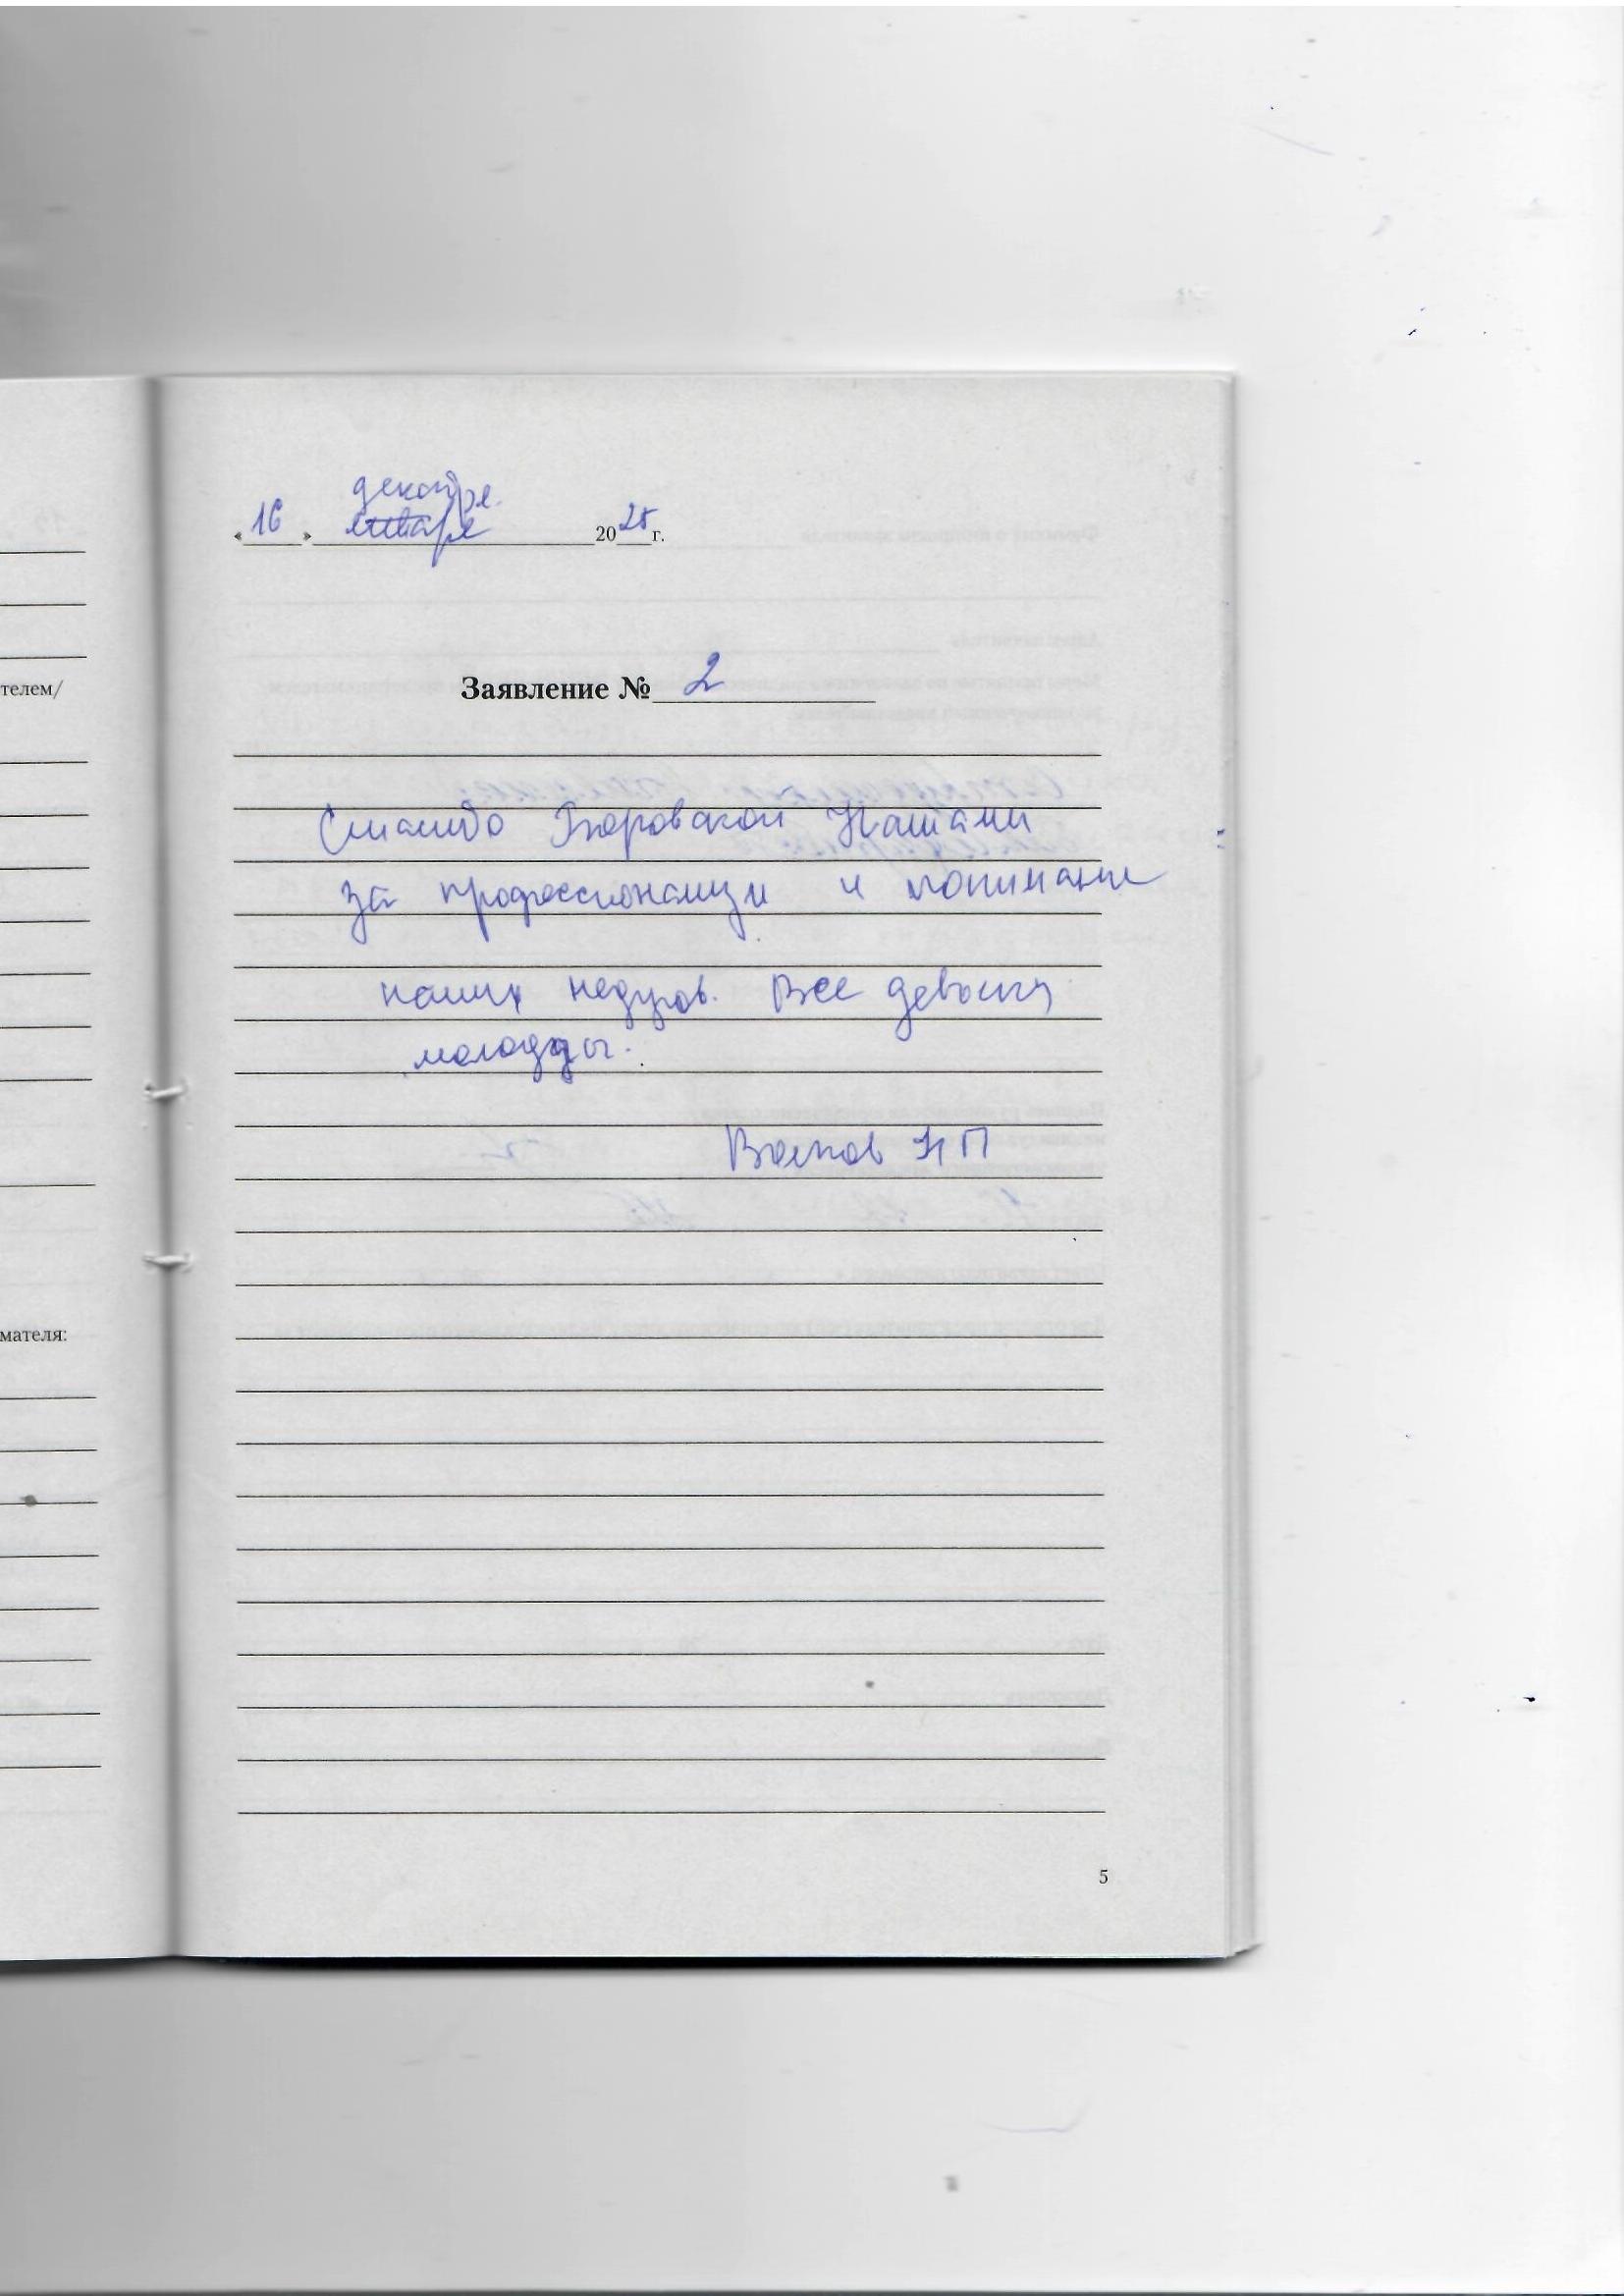 декабря
«16» января 2025 г.
телем/
Заявление № 2
Спасибо Боровской Наталии
за профессионализм и понимание
наших недугов. Все девочки
молодцы.
Волков НП
мателя:
5